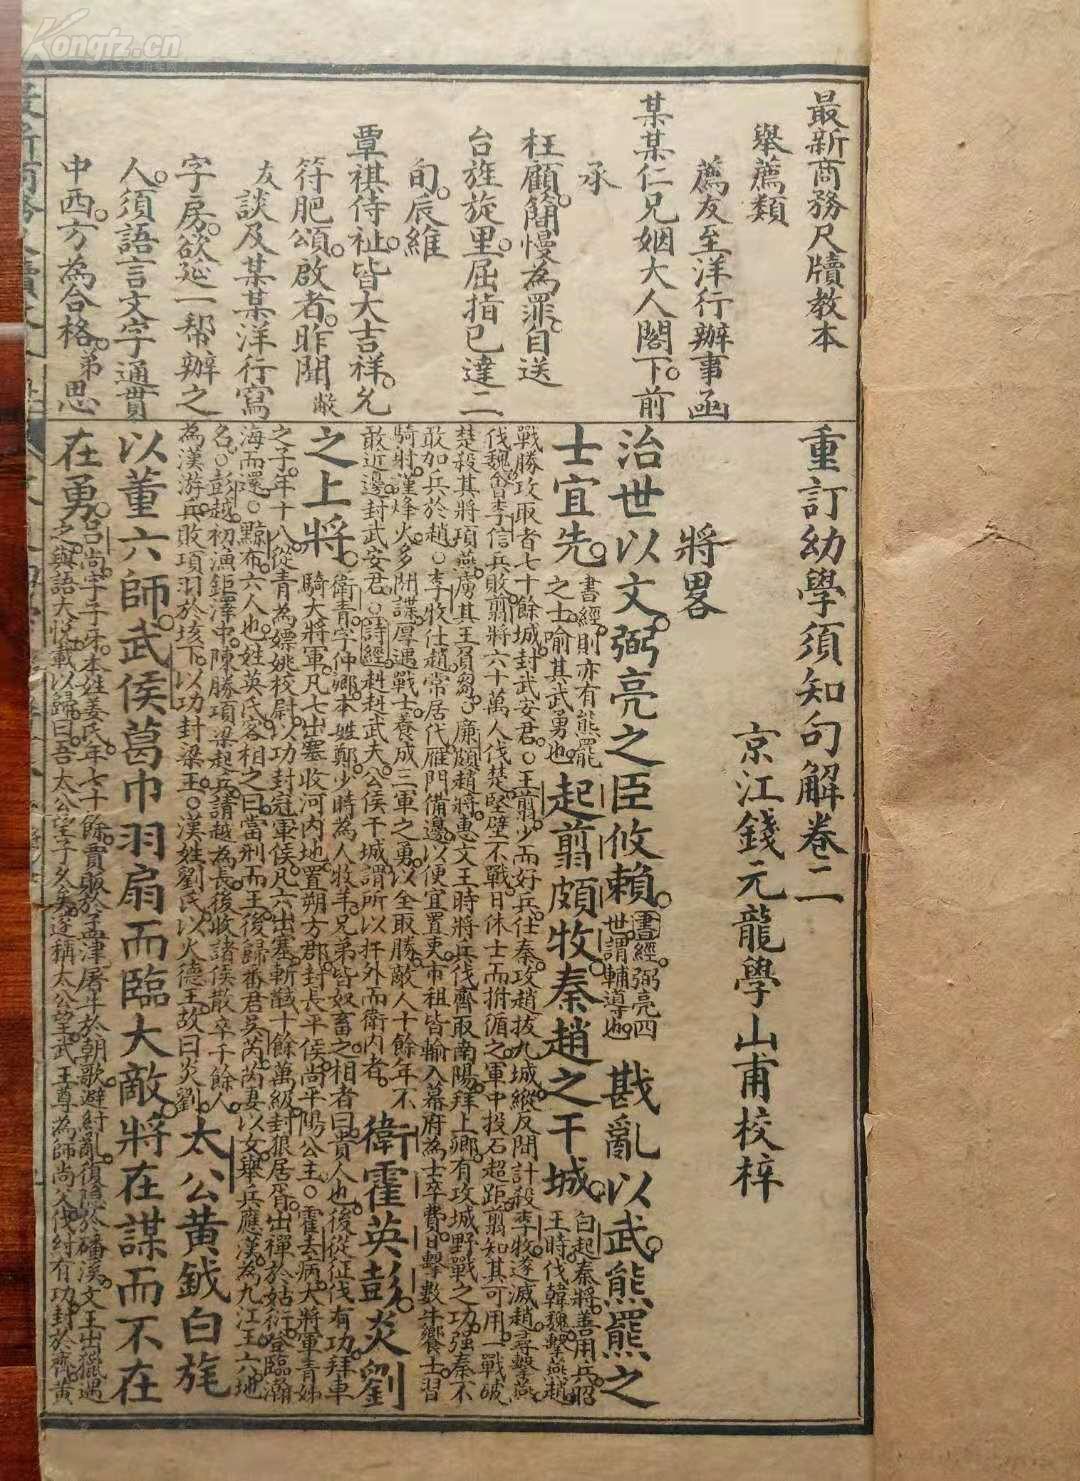 最新商務尺牘教本
舉薦類
薦友至洋行辦事函
某某仁兄姻大人閣下。前
承
枉顧。簡慢為罪。自送
台旌旋里。屈指已達二
旬。辰維
覃祺侍祉。皆大吉祥。允
符肥頌。啟者。昨聞敝
友談及某某洋行寫
字房。欲延一幫辦之
人。須語言文字通貫
中西。方為合格。弟思
重訂幼學須知句解卷二
京江錢元龍學山甫校梓
將畧
治世以文。弼亮之臣攸賴。書經弼亮四世謂輔導也 戡亂以武。熊羆之
士宜先。書經則亦有熊羆之士喻其武勇也 起翦頗牧。秦趙之干城。白起秦將善用兵昭王時伐韓魏擊燕趙
戰勝攻取者七十餘城封武安君。○王翦少而好兵仕秦攻趙拔九城縱反間計殺李牧遂滅趙尋擊燕
伐魏會李信兵敗翦將六十萬人伐楚堅壁不戰日休士而拊循之軍中投石超距翦知其可用一戰破
楚殺其將項燕虜其王負芻。廉頗趙將惠文王時將兵伐齊取南陽拜上卿有攻城野戰之功強秦不
敢加兵於趙。○李牧仕趙常居代雁門備邊以便宜置吏市租皆輸入幕府為士卒費日擊數牛饗士習
騎射謹烽火多間諜厚遇戰士養成三軍之勇以全取勝敵人十餘年不
敢近邊封武安君。○詩經赳赳武夫公侯干城謂所以扞外而衛內者。 衛霍英彭。炎劉
之上將。衛青字仲卿本姓鄭少時為人牧羊兄弟皆奴畜之相者曰貴人也後從征伐有功拜車
騎大將軍凡七出塞收河內地置朔方郡封長平侯尚平陽公主。○霍去病大將軍青姊
之子年十八從青為嫖姚校尉以功封冠軍侯凡六出塞斬馘十餘萬級封狼居胥出禪於姑衍登臨瀚
海而還。○黥布六人也姓英氏客相之曰當刑而王後歸番君吳芮芮妻以女舉兵應漢為九江王六地
名。○彭越初漁鉅澤中陳勝項梁起兵請越為長後收諸侯散卒千餘人
為漢游兵敗項羽於垓下以功封梁王。○漢姓劉氏以火德王故曰炎劉 太公黄鉞白旄
以董六師。武侯葛巾羽扇而臨大敵。將在謀而不在
在勇。呂尚字子牙本姓姜氏年七十餘賣販於孟津屠牛於朝歌避紂亂復隱於磻溪文王出獵遇
之與語大悅載以歸曰吾太公望子久矣遂稱太公望武王尊為師尚父伐紂有功封於齊黃
Kongfz.cn